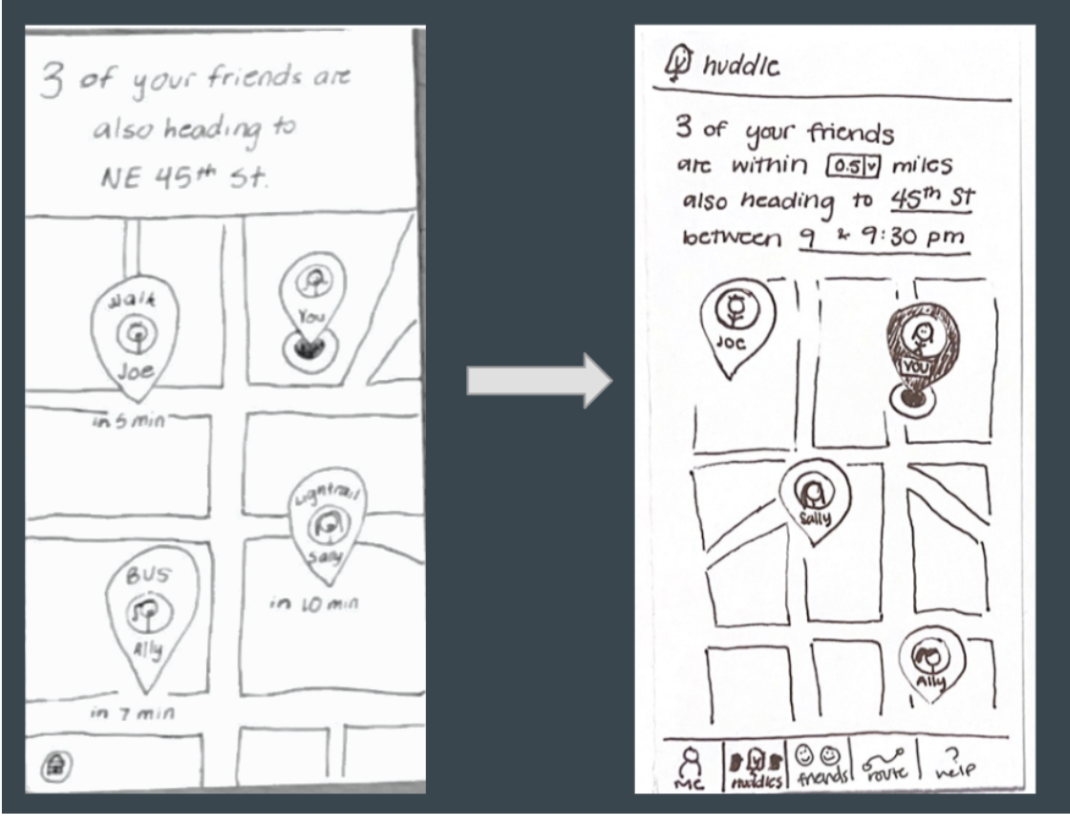 3 of your friends are
also heading to
NE 45th St.
Walk
Joe
in 5 min
You
Lightrail
Sally
in 10 min
BUS
Ally
in 7 min
huddle
3 of your friends
are within 0.5 v miles
also heading to 45th St
between 9 & 9:30 pm
JOE
YOU
Sally
Ally
ME
huddles
friends
route
?
help